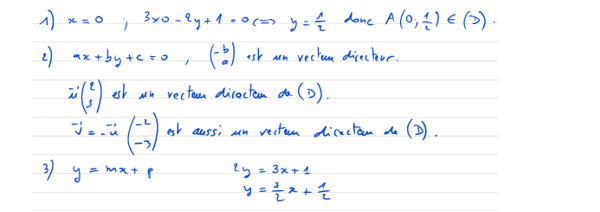 1) x = 0 ; 3x0 - 2y + 1 = 0 <=> y = 1/2 donc A(0, 1/2) ∈ (D).
2) ax + by + c = 0 , (-b a) est un vecteur directeur.
u⃗ (2 3) est un vecteur directeur de (D).
v⃗ = -u⃗ (-2 -3) est aussi un vecteur directeur de (D).
3) y = mx + p 2y = 3x + 1
y = 3/2 x + 1/2